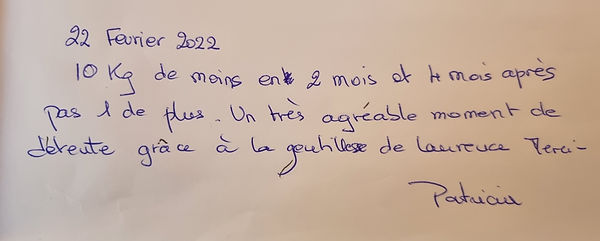 22 Fevrier 2022
10 Kg de moins en 2 mois et 4 mois après
pas 1 de plus. Un très agréable moment de
détente grâce à la gentillesse de Laurence Merci-
Patricia